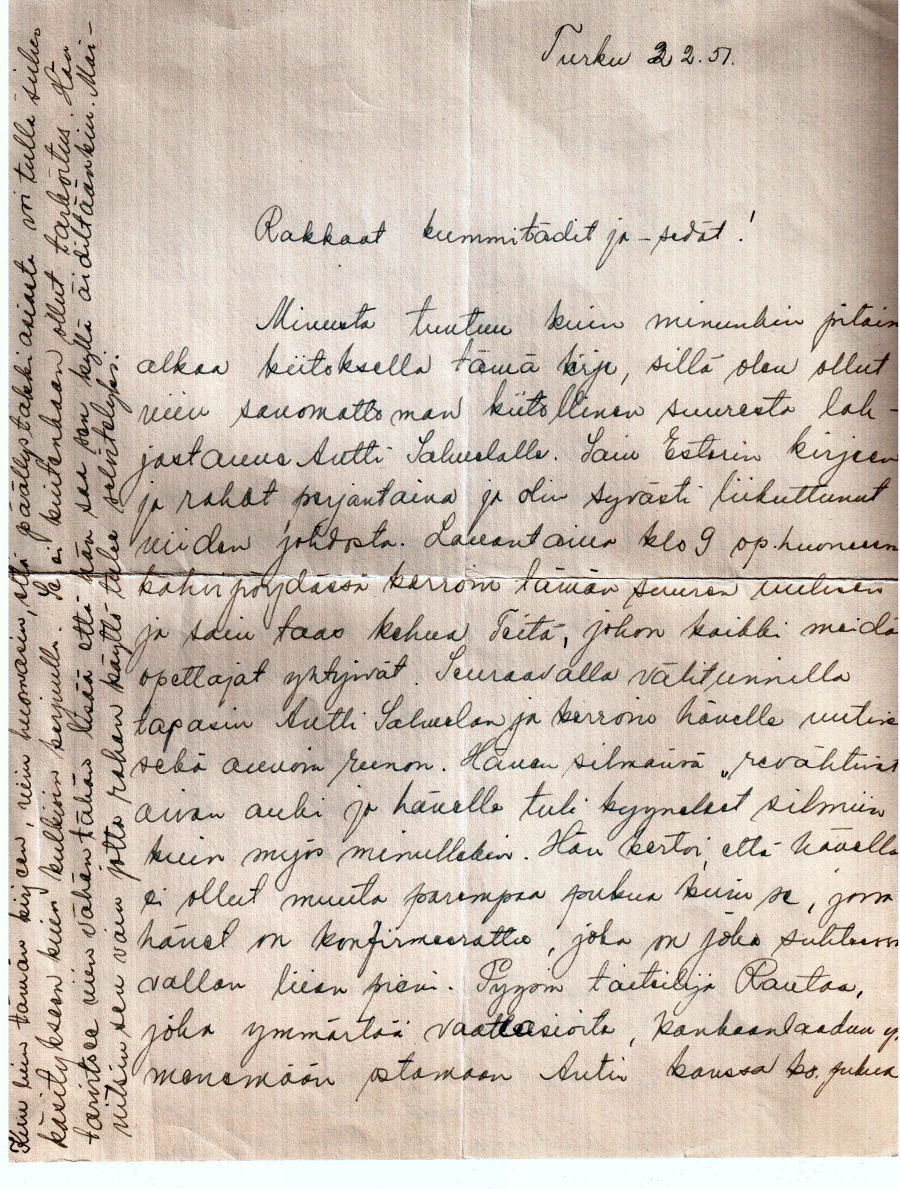 Turku 2 2.51.
Rakkaat kummitädit ja -sedät!
Minusta tuntuu kuin minunkin pitäin
alkaa kiitoksella tämä kirje, sillä olen ollut
niin sanomattoman kiitollinen suuresta lah-
jastanne Antti Salmelalle. Sain Esterin kirjeen
ja rahat perjantaina ja olin syvästi liikuttunut
niiden johdosta. Lauantaina klo 9 op.huoneen
kahvipöydässä kerroin tämän suuren uutisen
ja sain taas kehua Teitä, johon kaikki meidä
opettajat yhtyivät. Seuraavalla välitunnilla
tapasin Antti Salmelan ja kerroin hänelle uutis
sekä annoin neuvon. Hänen silmänsä „revähtivät
aivan auki ja hänelle tuli kyyneleet silmiin
kuin myös minullekin. Hän kertoi, että hänellä
ei ollut muuta parempaa pukua kuin se, jossa
hänet on konfirmeerattu, joka on joka suhteessa
vallan liian pieni. Pyysin taiteilija Rautaa,
joka ymmärtää vaateasioita, kankaanlaadun y.
menemään ostamaan Antin kanssa ko. pukua
Kun luin tämän kirjeen, niin huomasin, että päällystakkiasiasta voi tulla siihen
käsitykseen kuin kulkisin kerjuulla. Se ei kuitenkaan ollut tarkoitus. Hän
tarvitsee niin vähän tähän lisää että hän saa sen kyllä äidiltäänkin. Mai-
nitsin sen vain jotta rahan käyttö tulee selvitellyksi.